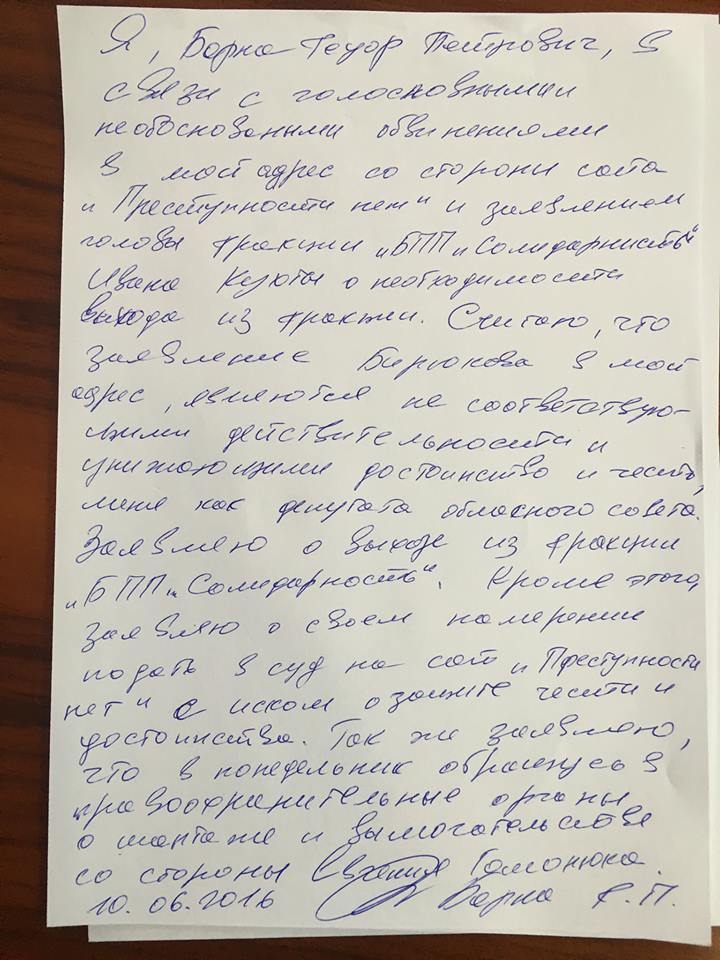 Я, Барна Федор Петрович, в
связи с голословными
необосноваными обвинениями
в мой адрес со стороны сайта
„Преступности нет" и заявлением
головы фракции „БПП „Солидарнисть"
Ивана о необходимости
выхода из фракции. Считаю, что
заявление Бирюкова в мой
адрес, являются не соответствую-
щими действительности и
унижающими достоинство и честь,
меня как депутата обласного совета.
Заявляю о выходе из фракции
„БПП „Солидарность". Кроме этого,
заявляю о своем намерении
подать в суд на сайт „Преступности
нет" с иском о защите чести и
достоинства. Так же заявляю,
что в понедельник обращусь в
правоохранительные органы
о шантаже и вымогательстве
со стороны Гомонюка.
10.06.2016 Барна Ф.П.